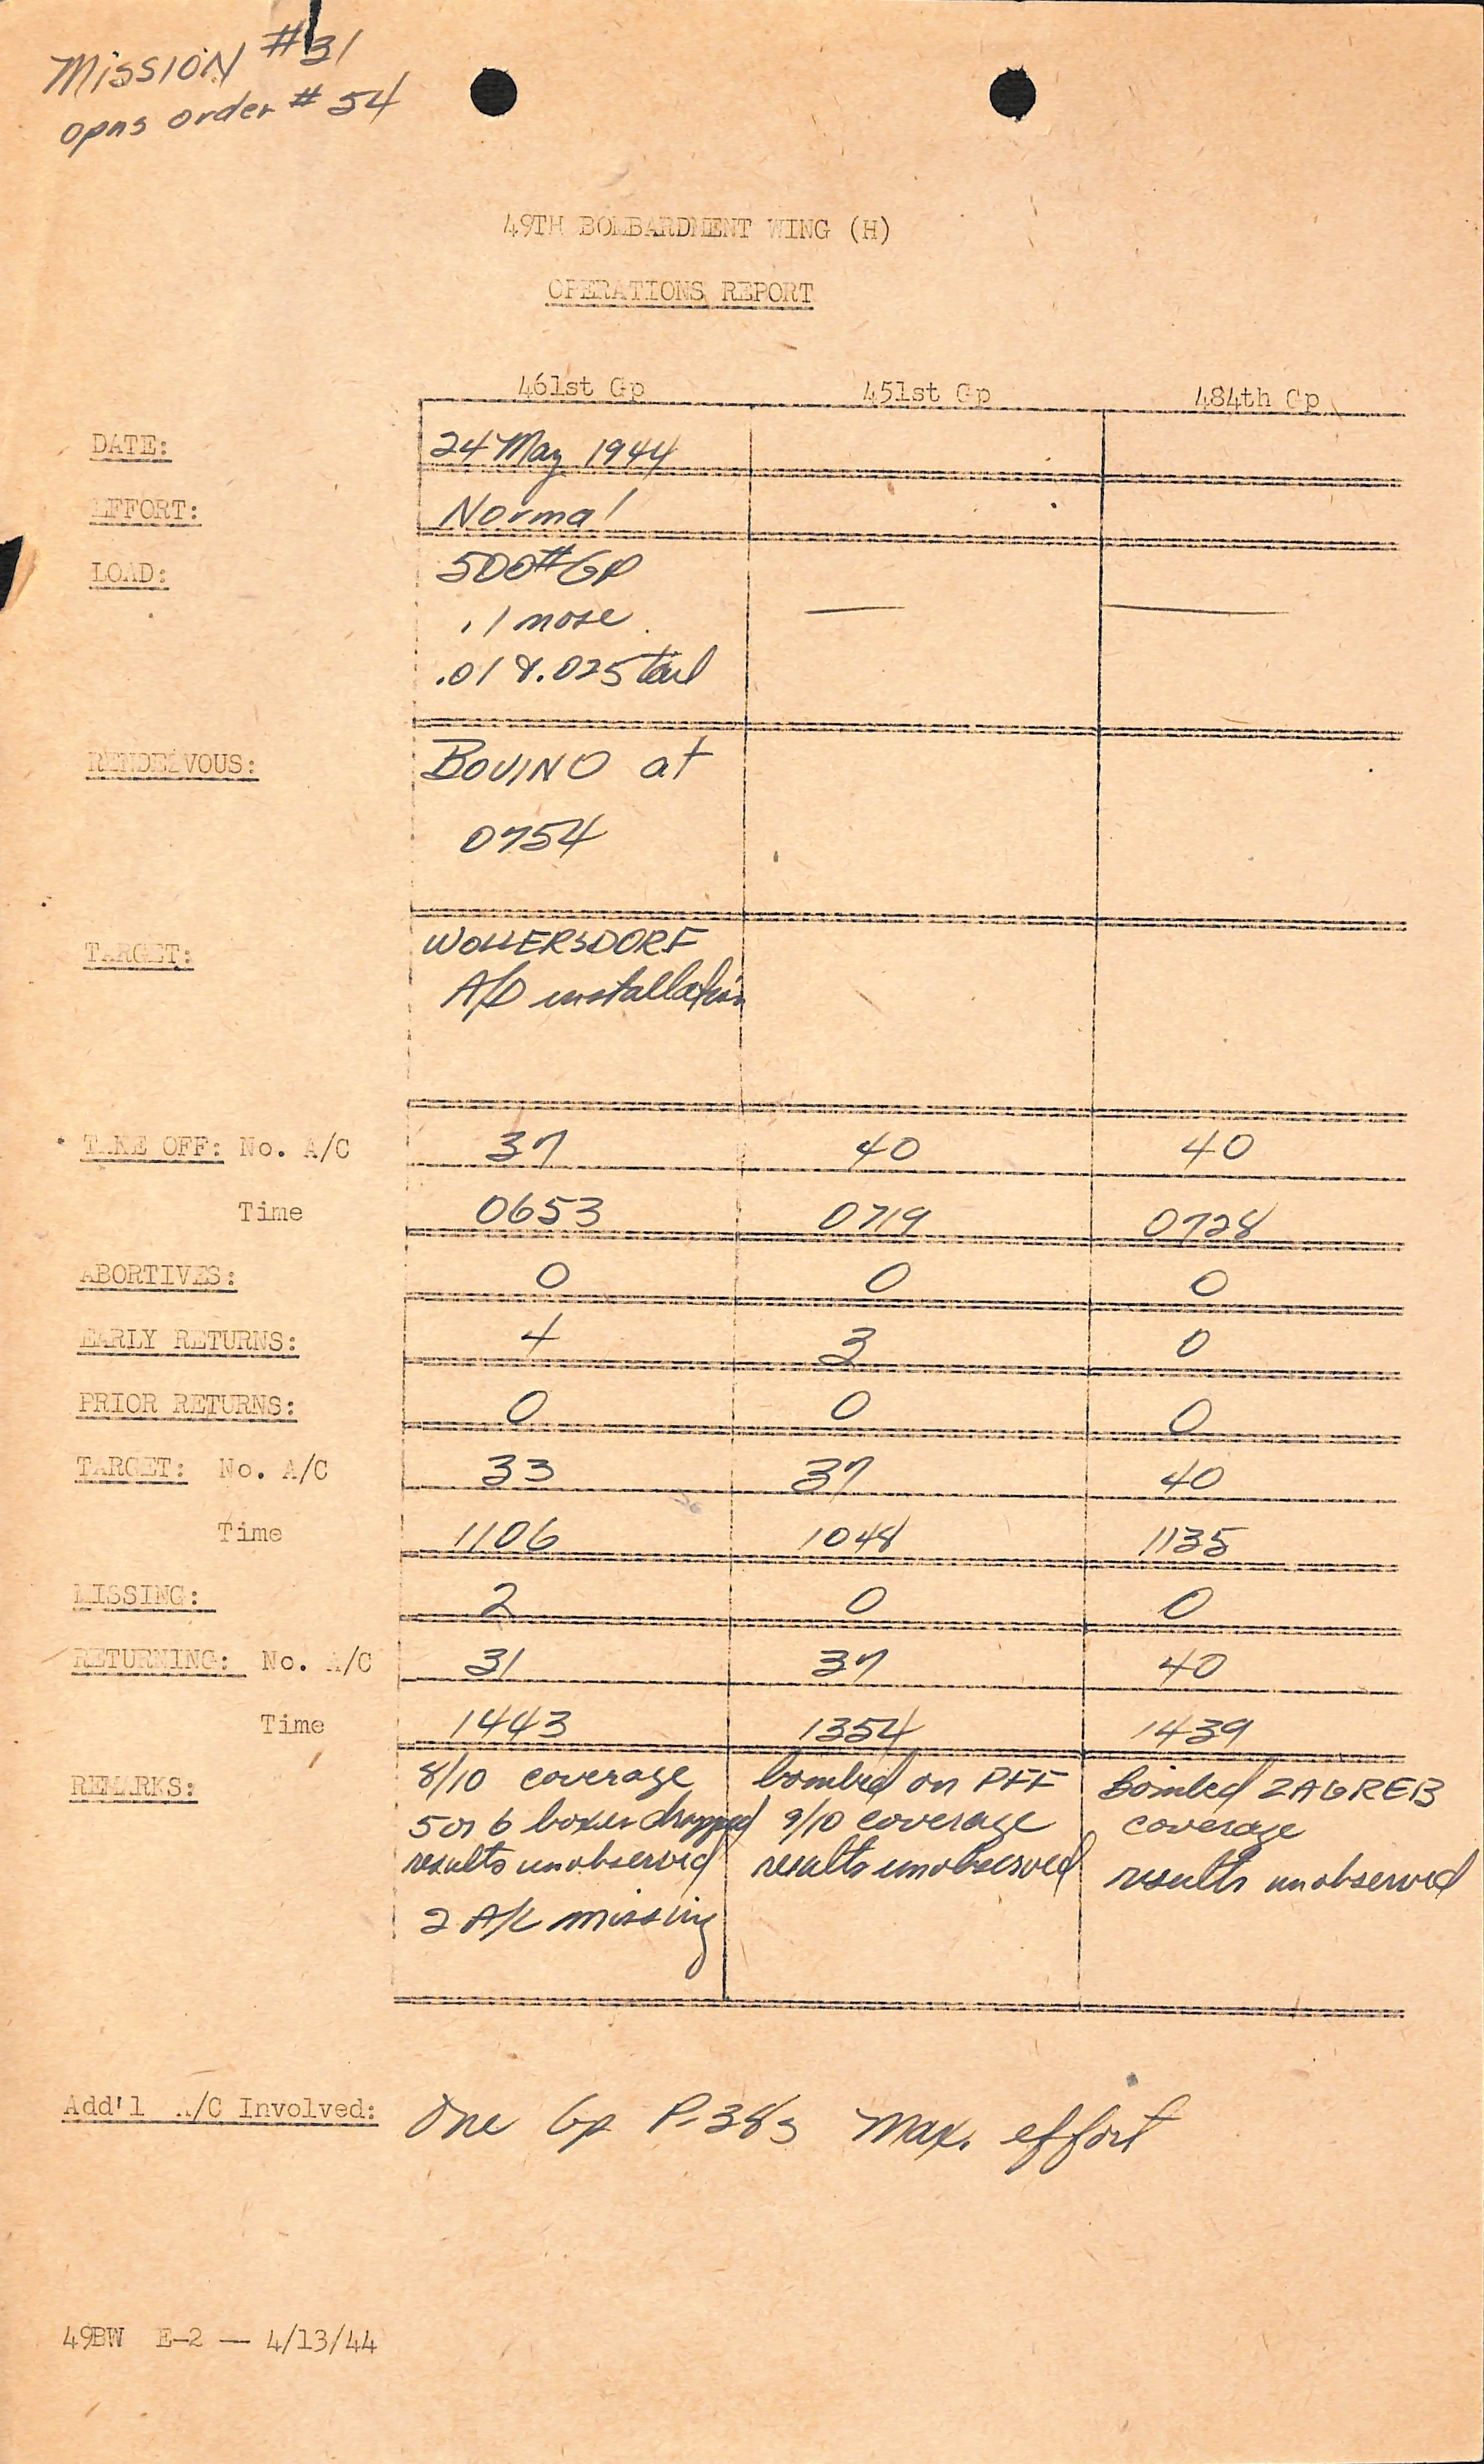 Mission #31
opns order # 54
49TH BOMBARDMENT WING (H)
OPERATIONS REPORT
461st Gp 451st Gp 484th Gp
DATE: 24 May 1944
EFFORT: Normal
LOAD: 500# GP
.1 nose
.01 & .025 tail
RENDEZVOUS: BOVINO at
0754
TARGET: WOLLERSDORF
A/D installation
TAKE OFF: No. A/C 37 40 40
Time 0653 0719 0728
ABORTIVES: 0 0 0
EARLY RETURNS: 4 3 0
PRIOR RETURNS: 0 0 0
TARGET: No. A/C 33 37 40
Time 1106 1048 1135
MISSING: 2 0 0
RETURNING: No. A/C 31 37 40
Time 1443 1354 1439
REMARKS: 8/10 coverage bombed on PFF Bombed ZAGREB
5 or 6 boxes dropped 9/10 coverage coverage
results unobserved results unobserved results unobserved
2 A/C missing
Add'l A/C Involved: One Gp P-38s Max. effort
49BW E-2 — 4/13/44